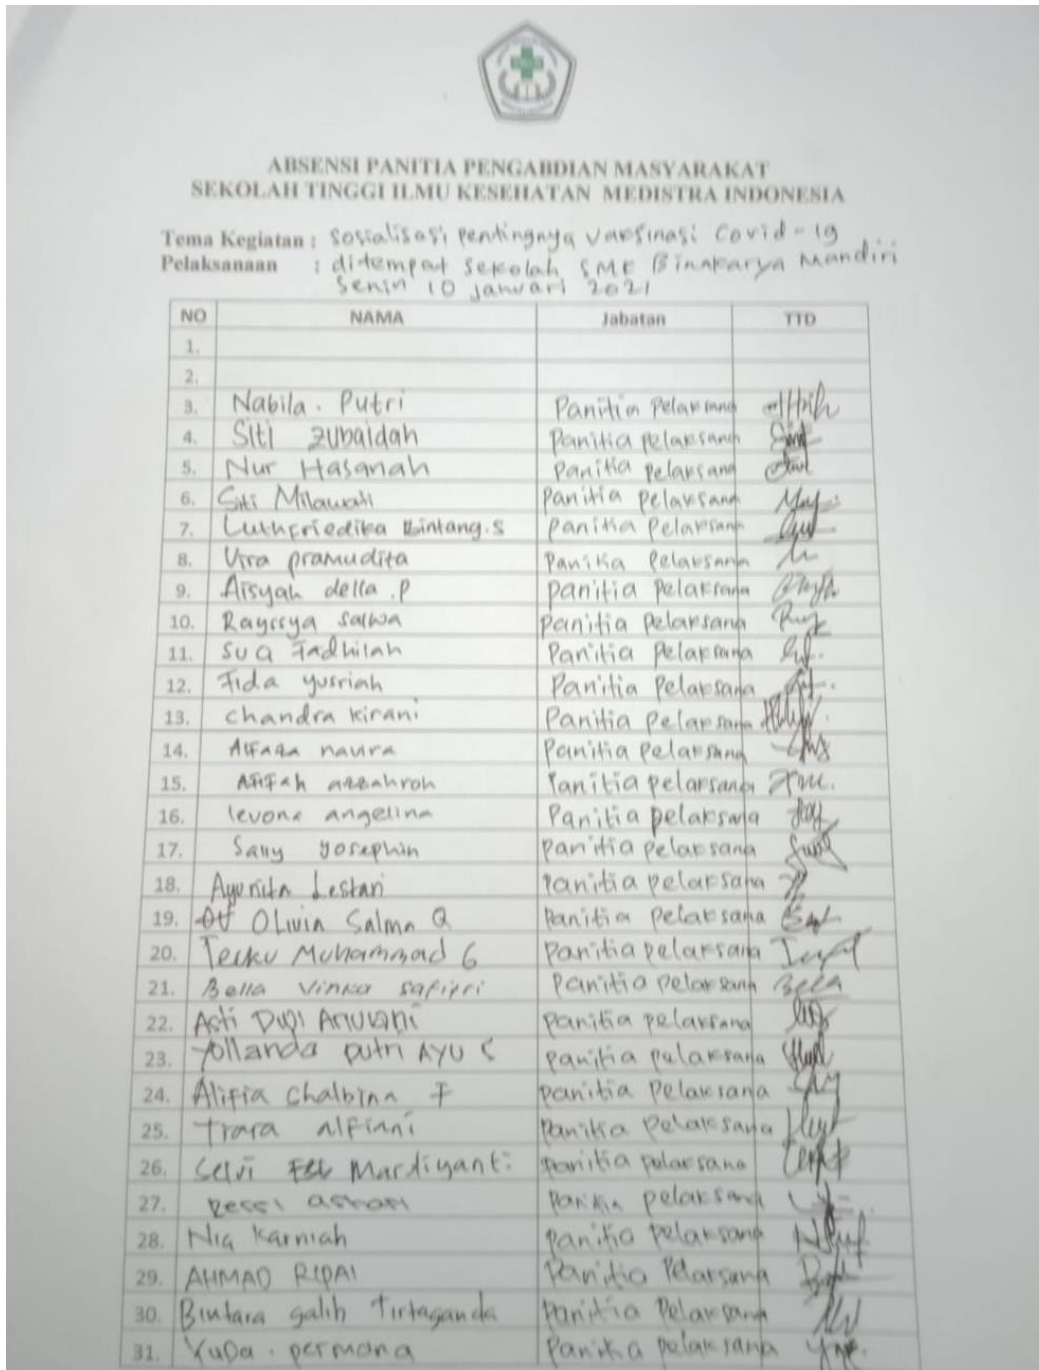 ABSENSI PANITIA PENGABDIAN MASYARAKAT
SEKOLAH TINGGI ILMU KESEHATAN MEDISTRA INDONESIA
Tema Kegiatan : Sosialisasi pentingnya vaksinasi Covid-19
Pelaksanaan : ditempat sekolah SMK Binakarya Mandiri
Senin 10 januari 2021
NO NAMA Jabatan TTD
1.
2.
3. Nabila. Putri Panitia Pelaksana
4. Siti zubaidah Panitia pelaksana
5. Nur Hasanah Panitia pelaksana
6. Siti Milawati panitia pelaksana
7. Luthfriedika Bintang.S panitia Pelaksana
8. Vira pramudita Panitia Pelaksana
9. Aisyah della .P panitia Pelaksana
10. Rayssya salwa panitia Pelaksana
11. Sua Fadhilah Panitia Pelaksana
12. Fida yusriah Panitia Pelaksana
13. Chandra kirani Panitia Pelaksana
14. naura Panitia pelaksana
15. Afifah azzahroh Panitia pelaksana
16. levona angelina Panitia pelaksana
17. Sally yosephin panitia pelaksana
18. Ayunita Lestari Panitia pelaksana
19. Olivia Salma Q Panitia pelaksana
20. Teuku Muhammad G Panitia pelaksana
21. Bella Vinka safitri Panitia pelaksana Bella
22. Asti Dwi panitia pelaksana
23. Yollanda putri AYU S panitia pelaksana
24. Alifia Chalbina F panitia pelaksana
25. Trara alfiani Panitia pelaksana
26. Selvi Mardiyanti panitia pelaksana
27. panitia pelaksana
28. Nia karniah panitia pelaksana
29. AHMAD RIPAI Panitia Pelaksana
30. Bintara galih Tirtaganda Panitia Pelaksana
31. Yuda . permana Panitia Pelaksana